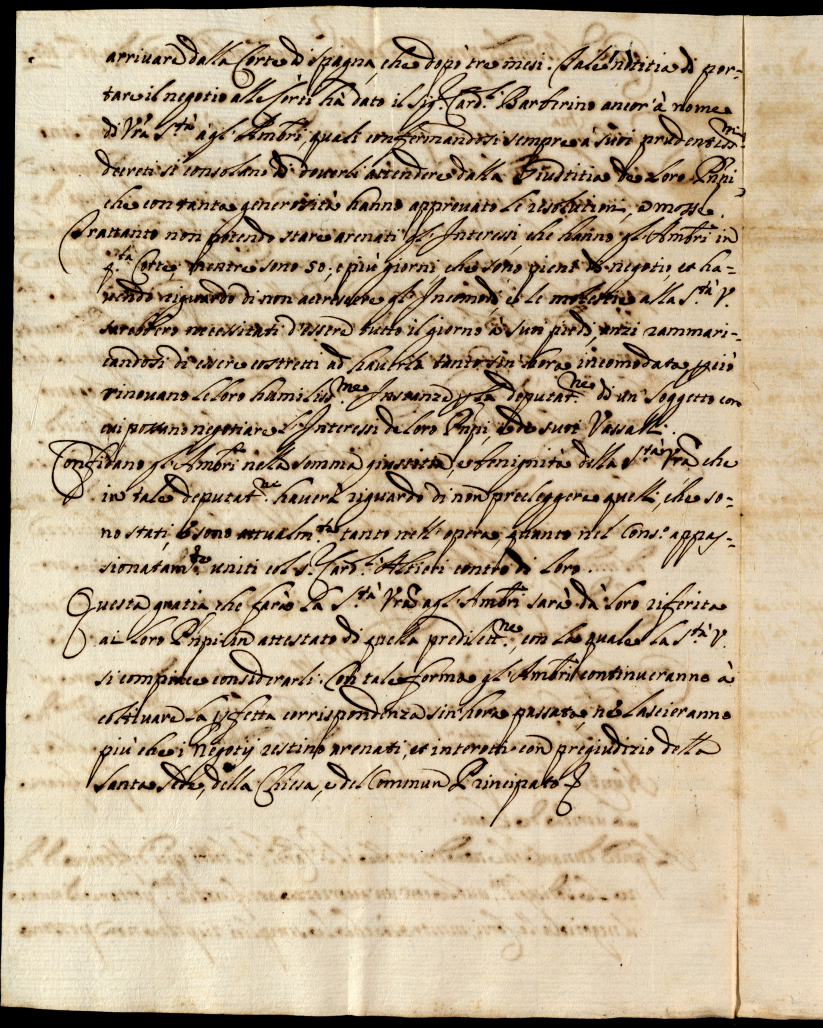 arrivare dalla Corte di Spagna, che dopò tre mesi. Tale notitia di por-
tare il negotio alle sorti hà dato il Sig.r Card.l Barberino ancor' à nome
di Vrà S.tà à gl'Ambri, quali conformandosi sempre à suoi prudentiss.mi
decreti si consolano di doverli attendere dalla Giustitia de Loro Pnpi
che con tanta generosità hanno approuato le risolutioni, e mosse.
Trattanto non potendo stare arenati gl'Interessi che hanno gl'Ambri in
q.ta Corte, mentre sono 50, e più giorni che sono pieni di negotio, et ha-
uendo riguardo di non accrescere gl'Incomodi e le molestie alla S.tà V.
sarebbero necessitati d'essere tutto il giorno à suoi piedi anzi rammari-
candosi di essere costretti ad hauerla tanto sin'hora incomodata, perciò
rinouano le loro humiliss.me Instanze p la deputat.ne di un Soggetto con
cui possino negotiare l'Interessi de loro Pnpi, e de suoi Vassalli.
Confidano gl'Ambri nella somma giustitia, e benignità della S.tà Vrà che
in tale deputat.ne hauerà riguardo di non preeleggere quelli, che so-
no stati, e sono attualm.te tanto nell'opera, quanto nel Cons.o appas-
sionatam.te uniti col S.r Card.l Altieri contro di loro....
Questa gratia che farà la S.tà Vrà agl'Ambri sarà da loro riferita
ai loro Pnpi in attestato di quella predilett.ne, con la quale la S.tà V.
si compiace considerarli. Con tale forma gl'Ambri continueranno à
coltiuare la pfetta corrispondenza sin'hora passata, nè lascieranno
più che i negotij restino arenati, et interotti con pregiudizio della
Santa Sede, della Chiesa, e del Commun Principato